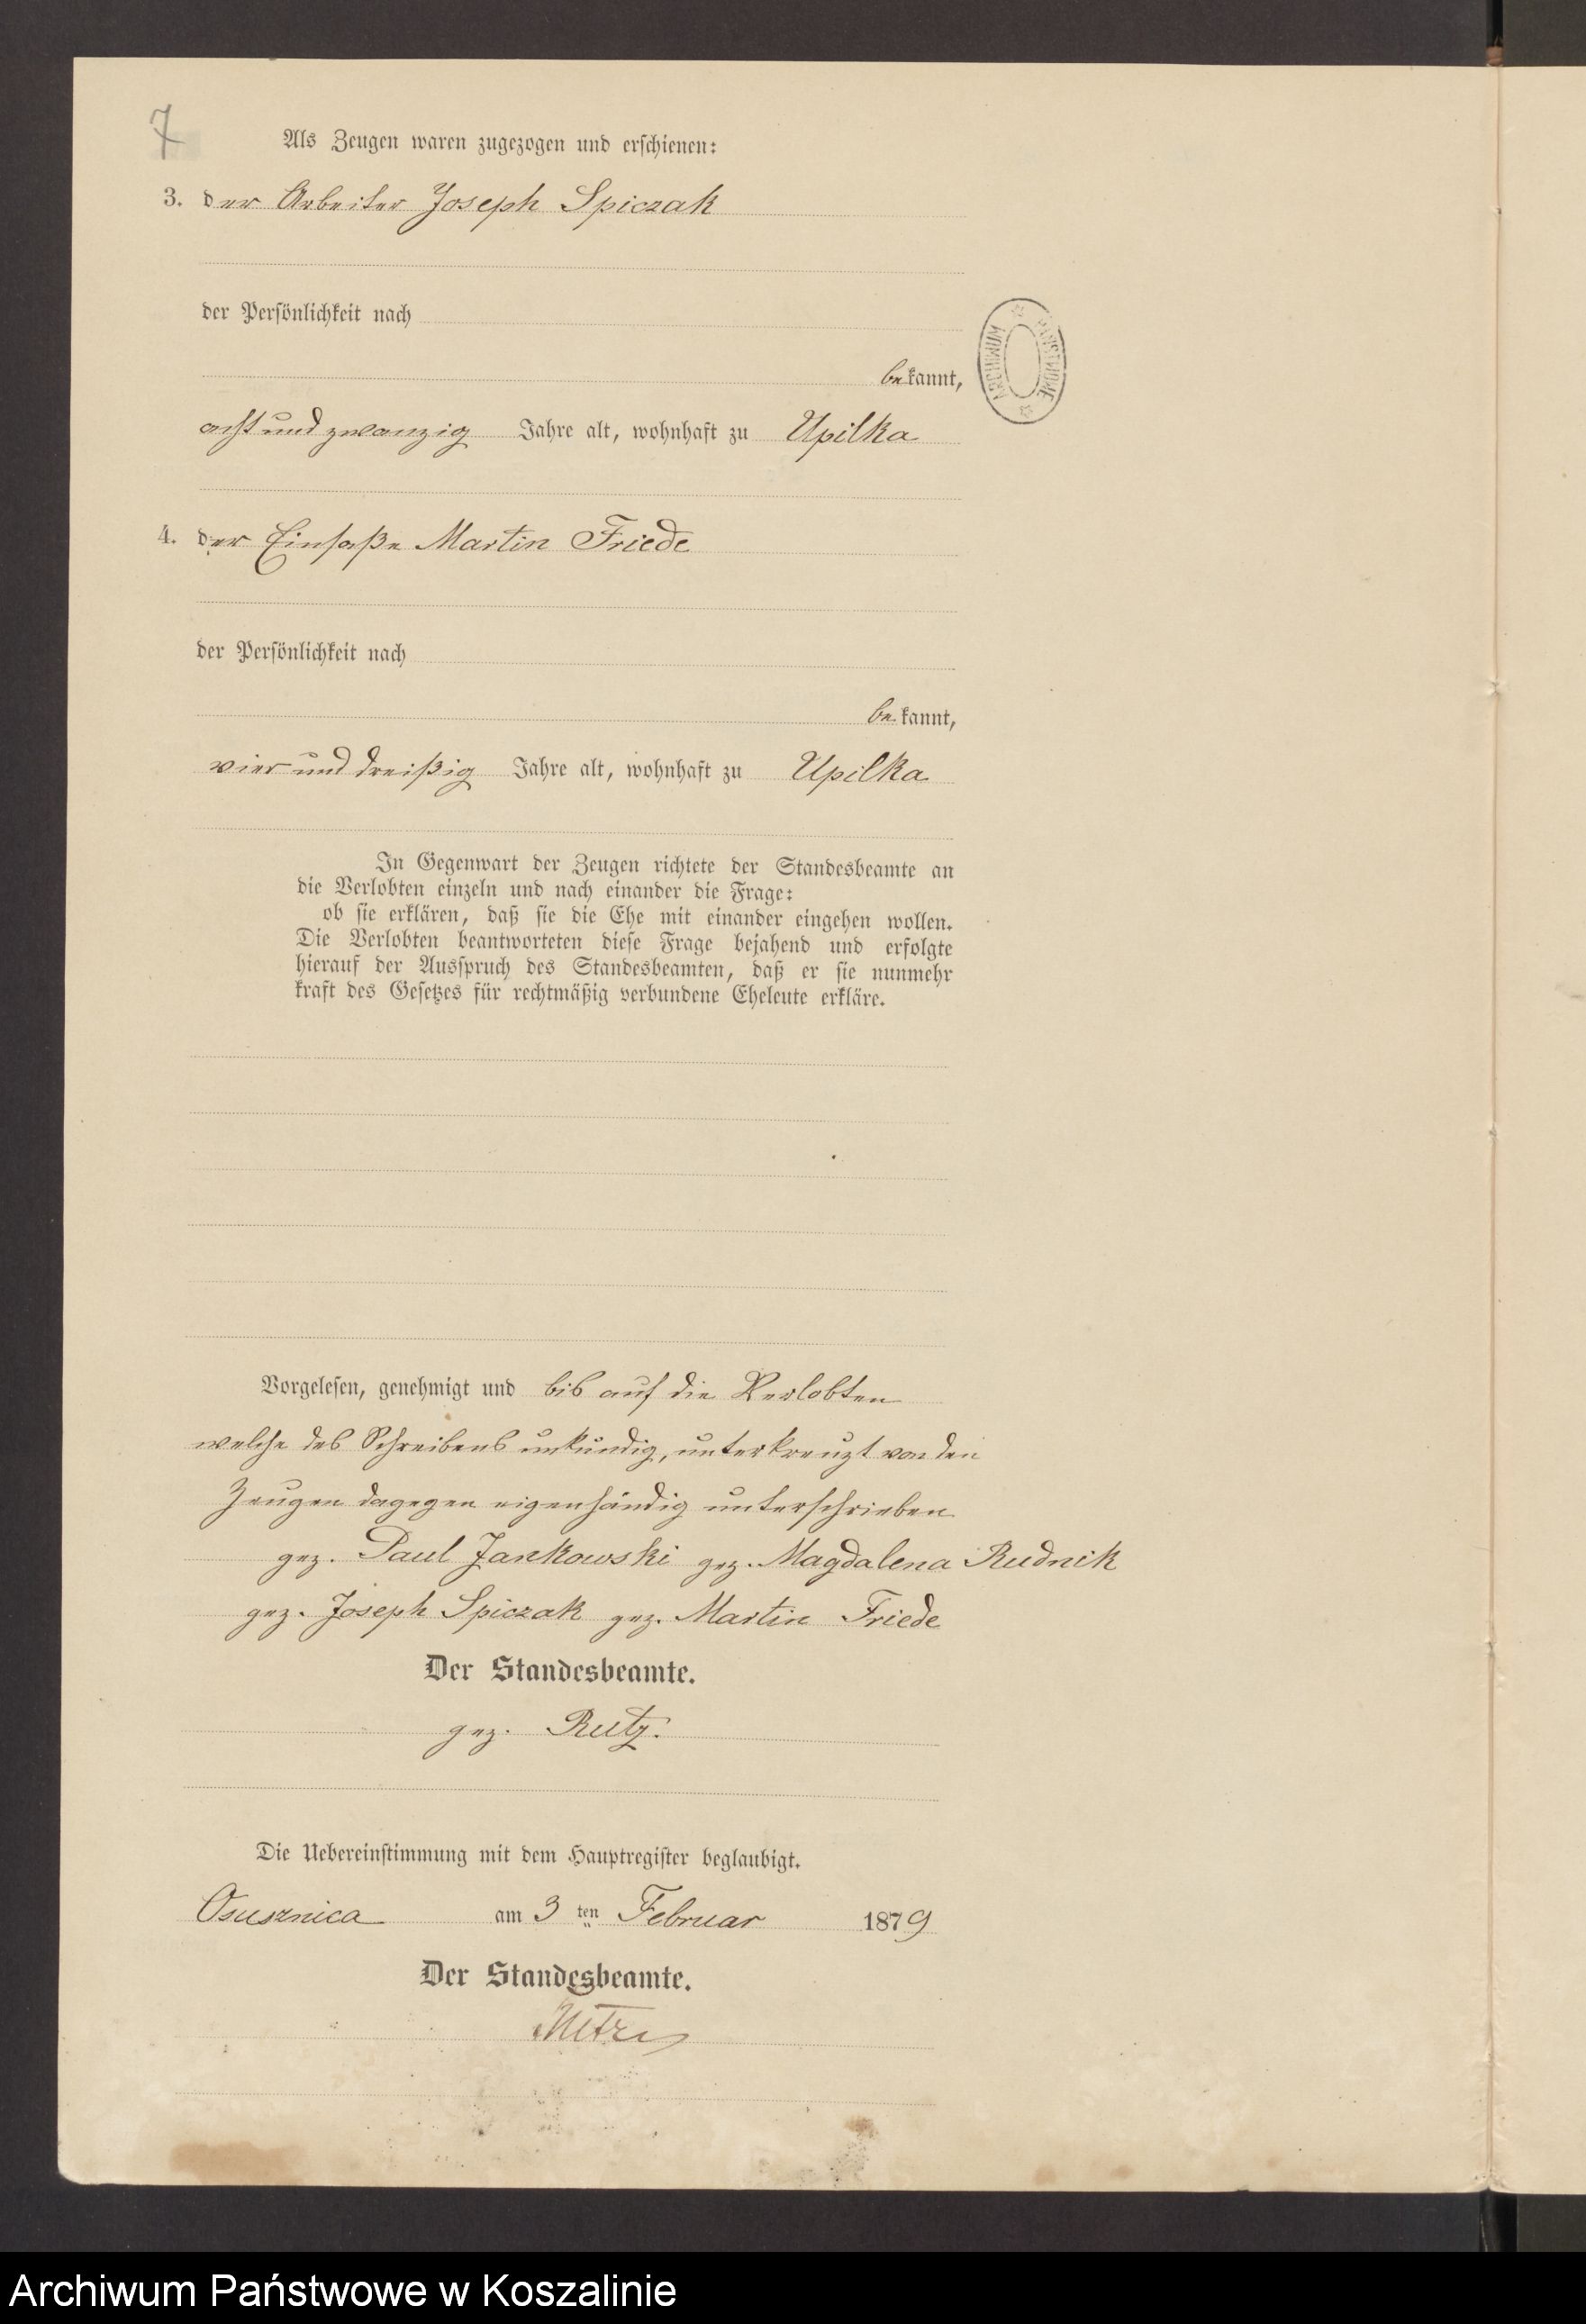 7
Als Zeugen waren zugezogen und erschienen:
3. der Arbeiter Joseph Spiczak
der Persönlichkeit nach
bekannt,
acht und zwanzig Jahre alt, wohnhaft zu Upilka
4. der Einsaße Martin Friede
der Persönlichkeit nach
bekannt,
vier und dreißig Jahre alt, wohnhaft zu Upilka
In Gegenwart der Zeugen richtete der Standesbeamte an
die Verlobten einzeln und nach einander die Frage:
ob sie erklären, daß sie die Ehe mit einander eingehen wollen.
Die Verlobten beantworteten diese Frage bejahend und erfolgte
hierauf der Ausspruch des Standesbeamten, daß er sie nunmehr
kraft des Gesetzes für rechtmäßig verbundene Eheleute erkläre.
Vorgelesen, genehmigt und bis auf die Verlobten
welche des Schreibens unkundig, unterkreuzt von den
Zeugen dagegen eigenhändig unterschrieben
gez. Paul Jankowski gez. Magdalena Rudnik
gez. Joseph Spiczak gez. Martin Friede
Der Standesbeamte.
gez. Rutz.
Die Uebereinstimmung mit dem Hauptregister beglaubigt.
Osusznica am 3 ten Februar 1879
Der Standesbeamte.
ARCHIWUM PAŃSTWOWE
Archiwum Państwowe w Koszalinie